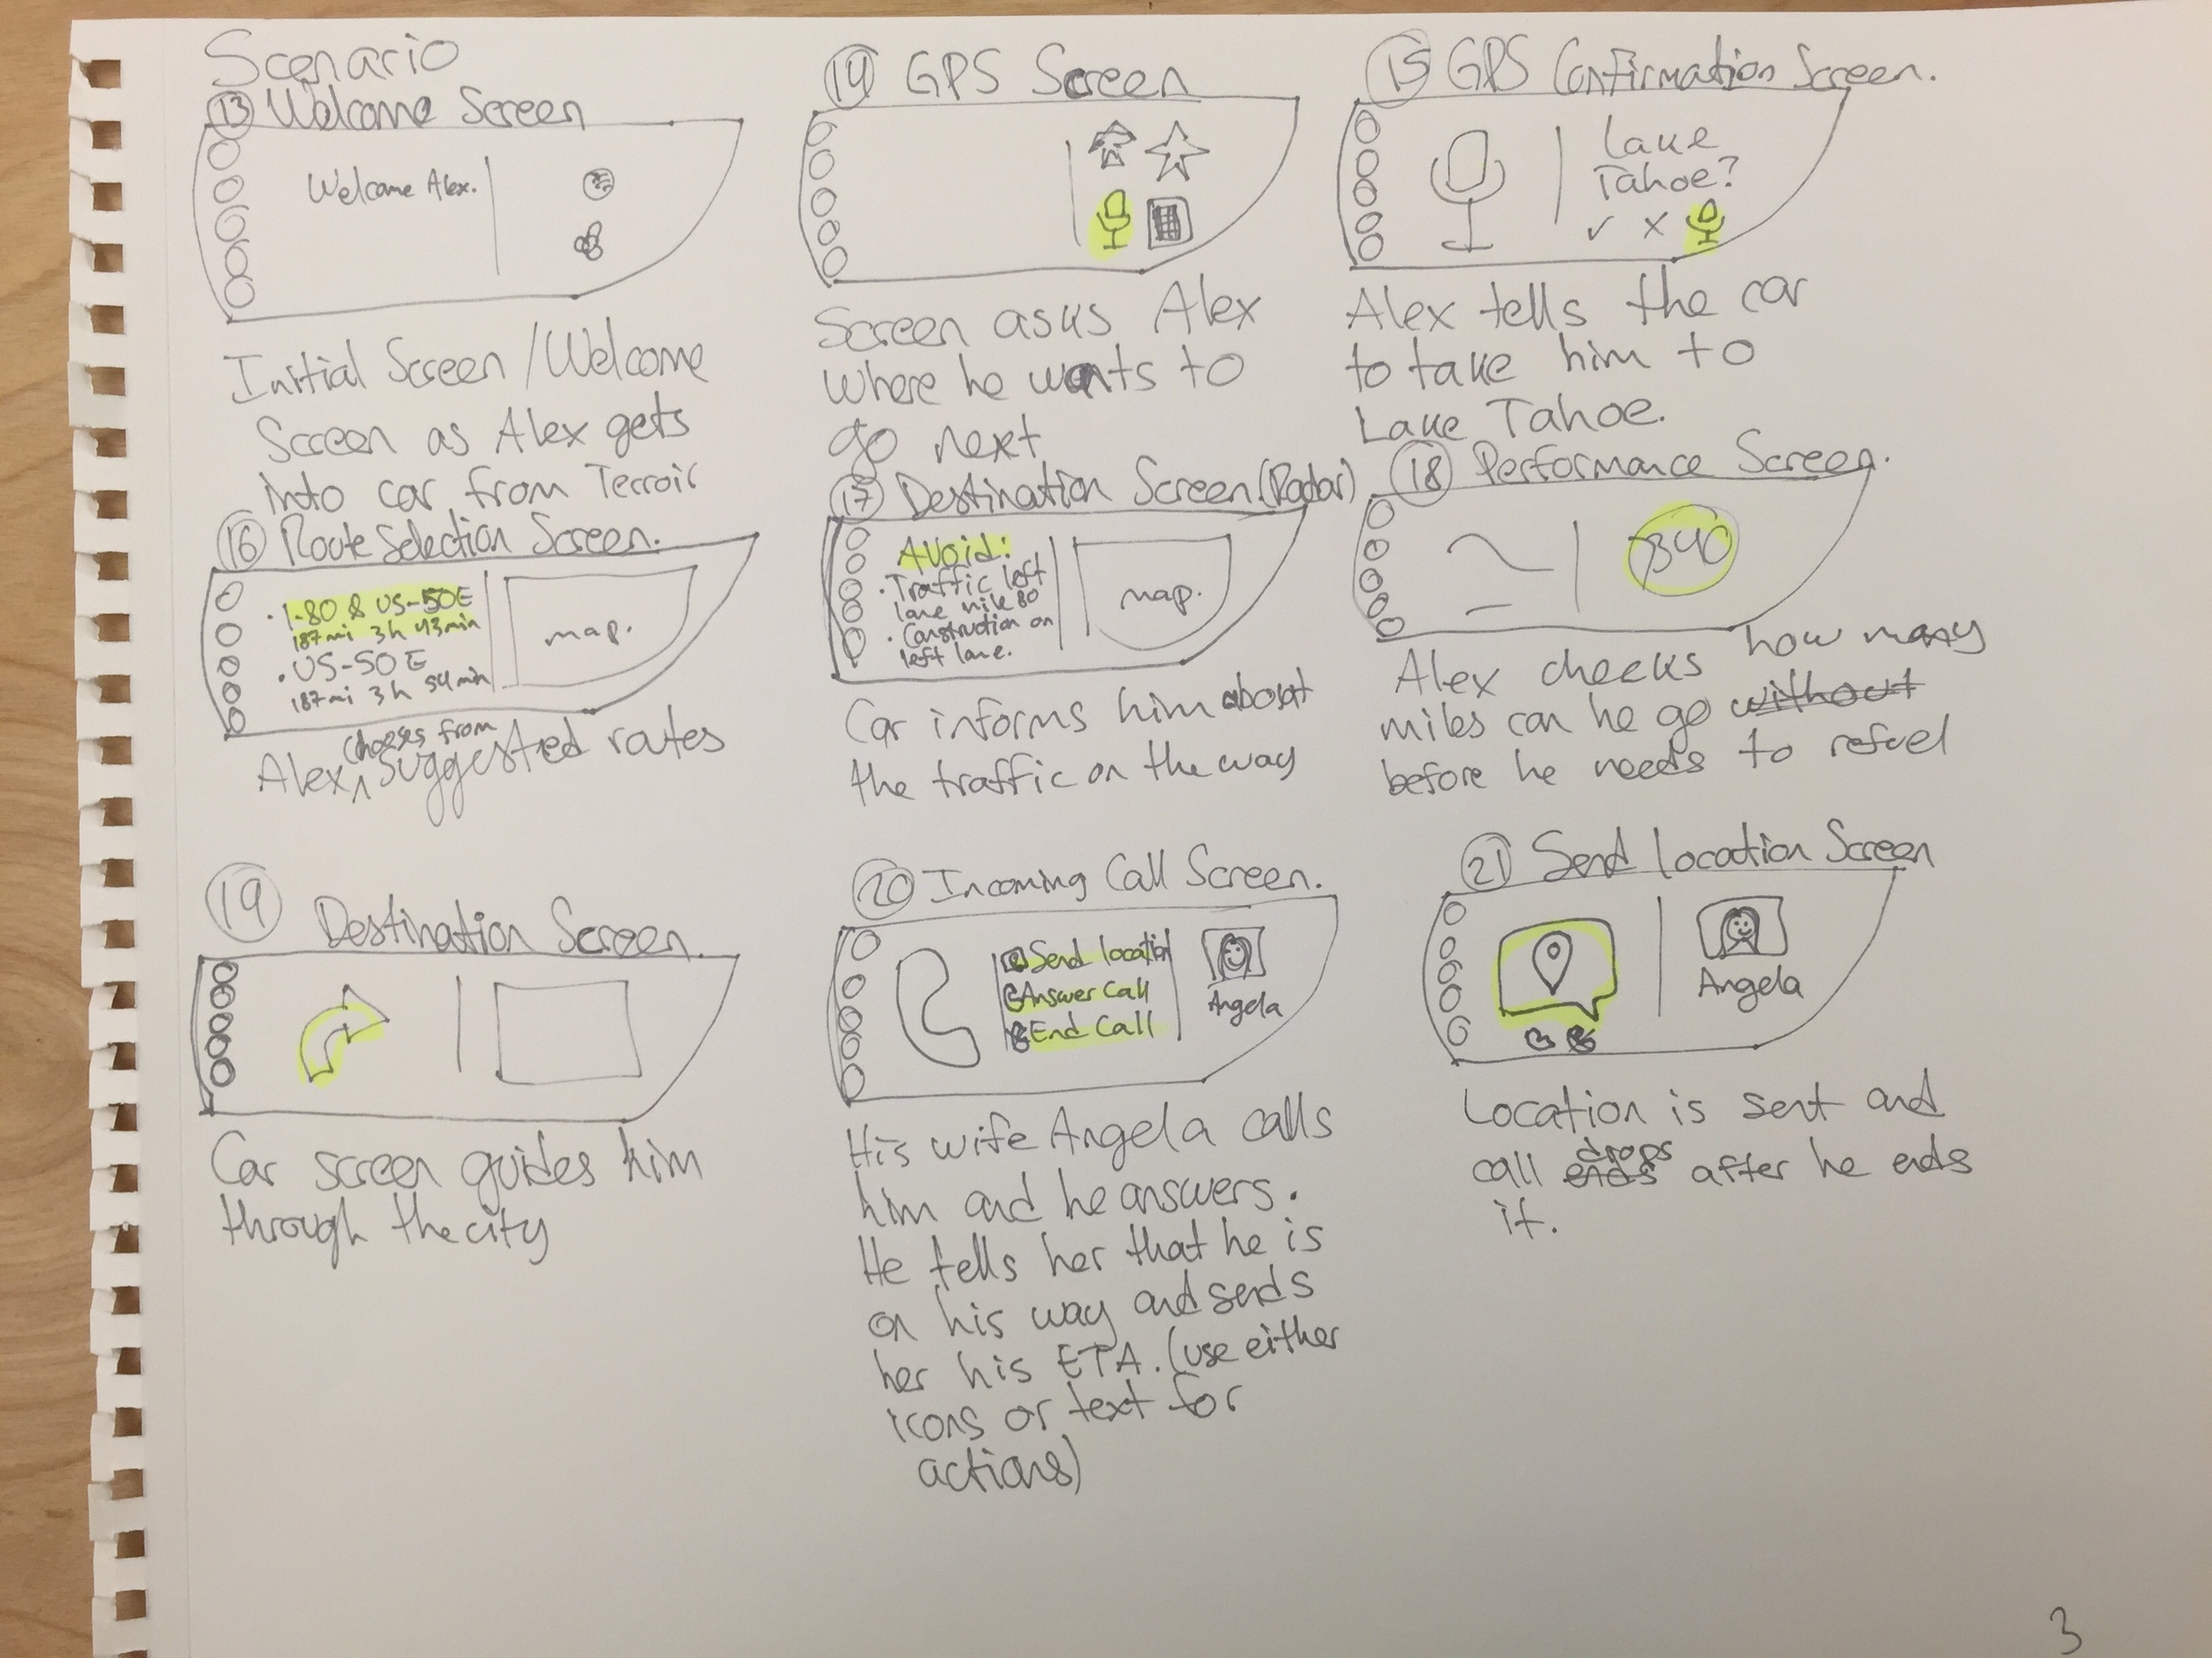 Scenario
13 Welcome Screen
Welcome Alex.
Initial Screen / Welcome
Screen as Alex gets
into car from Terroir
14 GPS Screen
Screen asks Alex
where he wants to
go next
15 GPS Confirmation Screen.
Lake
Tahoe?
✓ X
Alex tells the car
to take him to
Lake Tahoe.
16 Route Selection Screen.
· I-80 & US-50E
187 mi 3h 43min
· US-50E
187 mi 3h 54min
map.
Alex chooses from suggested routes
17 Destination Screen (Radar)
Avoid:
· Traffic left
lane mile 80
· Construction on
left lane.
map.
Car informs him about
the traffic on the way
18 Performance Screen.
340
Alex checks how many
miles can he go without
before he needs to refuel
19 Destination Screen.
Car screen guides him
through the city
20 Incoming Call Screen.
Send location
Answer Call
End Call
Angela
His wife Angela calls
him and he answers.
He tells her that he is
on his way and sends
her his ETA. (use either
icons or text for
actions)
21 Send Location Screen
Angela
Location is sent and
call ends drops after he ends
it.
3